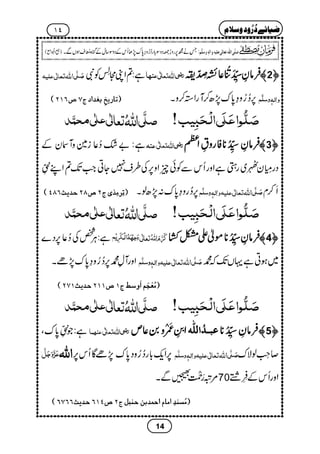 ١٤ ضیائے دُرُود و سلام
فرمانِ مصطفٰے صلی اللہ تعالی علیہ واٰلہ وسلم
﴿2﴾ فرمانِ سیِّدَتُنا عائشہ صِدّیقہ رضی اللہ تعالی عنہا ہے: تم اپنی مجالس کو نبی صلَّی اللہ تعالی علیہ
واٰلہ وسلم پر دُرُودِ پاک پڑھ کر آراستہ کرو۔ (تاریخ بغداد ج ٧ ص ٢١٦)
صَلُّوا عَلَی الْحَبِیب! صلَّی اللہُ تعالٰی علٰی محمَّد
﴿3﴾ فرمانِ سیِّدُنا فاروقِ اعظم رضی اللہ تعالی عنہ ہے: بے شک دُعا زمین و آسمان کے
درمیان ٹھہری رہتی ہے اور اُس سے کوئی چیز اوپر کی طرف نہیں جاتی جب تک تم اپنے نبیِّ
اکرم صلَّی اللہ تعالی علیہ واٰلہ وسلم پر دُرُودِ پاک نہ پڑھ لو۔ (ترمذی ج ٢ ص ٢٨ حدیث ٤٨٦)
صَلُّوا عَلَی الْحَبِیب! صلَّی اللہُ تعالٰی علٰی محمَّد
﴿4﴾ فرمانِ سیِّدُنا مولیٰ علی مشکل کشا کَرَّمَ اللہُ تعالٰی وَجْہَہُ الْکَرِیْم ہے: ہر شخص کی دُعا پردے
میں ہوتی ہے یہاں تک کہ محمد صلَّی اللہ تعالی علیہ واٰلہ وسلم اور آلِ محمد پر دُرُودِ پاک پڑھے۔
(مُعْجَم أوسط ج ١ ص ٢١١ حدیث ٢٧١)
صَلُّوا عَلَی الْحَبِیب! صلَّی اللہُ تعالٰی علٰی محمَّد
﴿5﴾ فرمانِ سیِّدُنا عبدُاللہ ابنِ عَمرْو بن عاص رضی اللہ تعالی عنہما ہے: جو نبیِّ پاک،
صاحبِ لولاک صلَّی اللہ تعالی علیہ واٰلہ وسلم پر ایک بار دُرُودِ پاک پڑھے گا اُس پر اللہ عَزَّوَجَلَّ
اور اُس کے فِرِشتے 70 مرتبہ رَحْمت بھیجیں گے۔
(مُسندِ امام احمد بن حنبل ج ٢ ص ٦١٤ حدیث ٦٧٦٦)
14